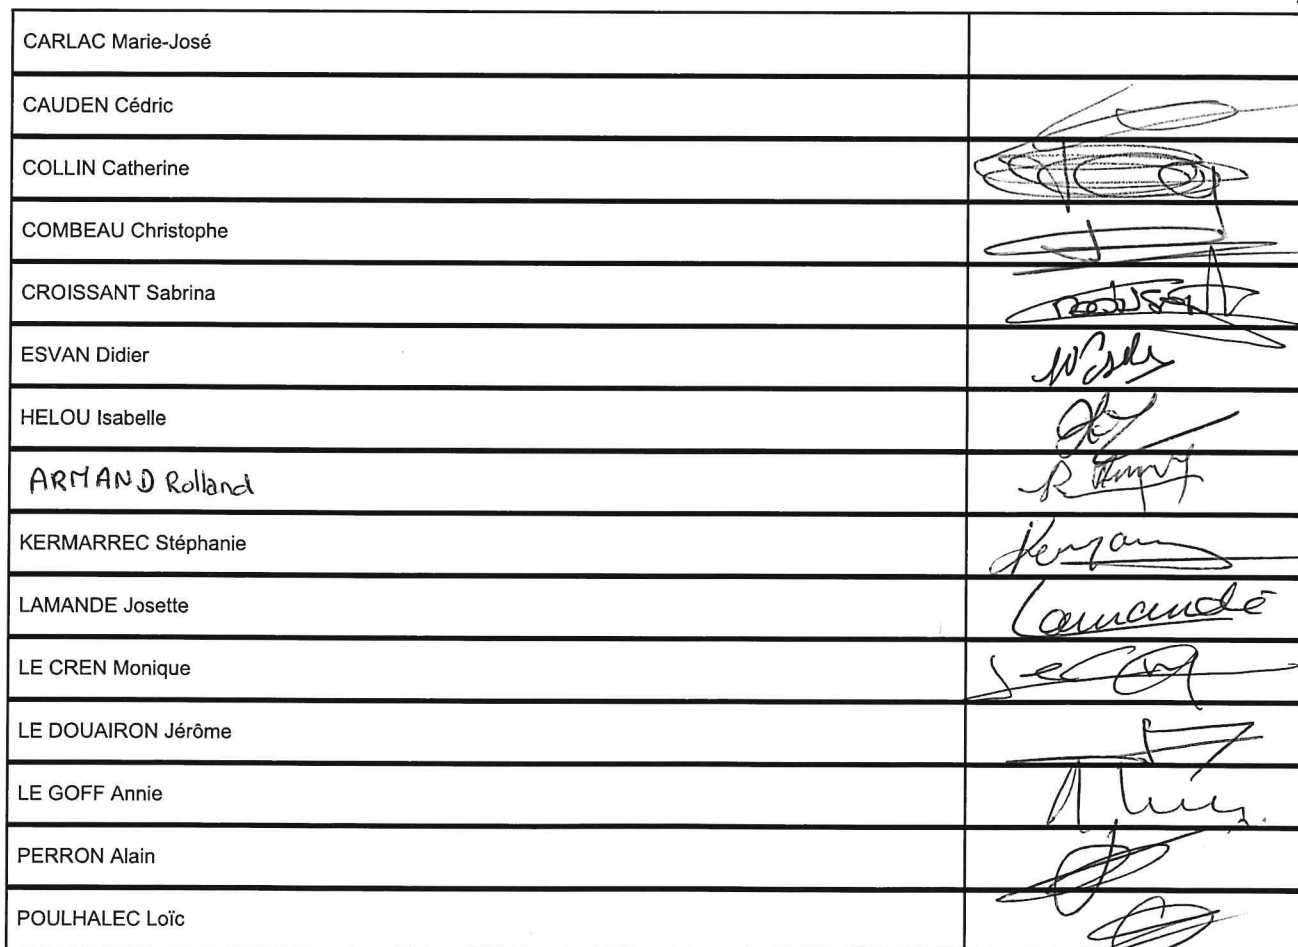 CARLAC Marie-José
CAUDEN Cédric
COLLIN Catherine
COMBEAU Christophe
CROISSANT Sabrina
ESVAN Didier
HELOU Isabelle
ARMAND Rolland
KERMARREC Stéphanie
LAMANDE Josette Lamandé
LE CREN Monique
LE DOUAIRON Jérôme
LE GOFF Annie
PERRON Alain
POULHALEC Loïc